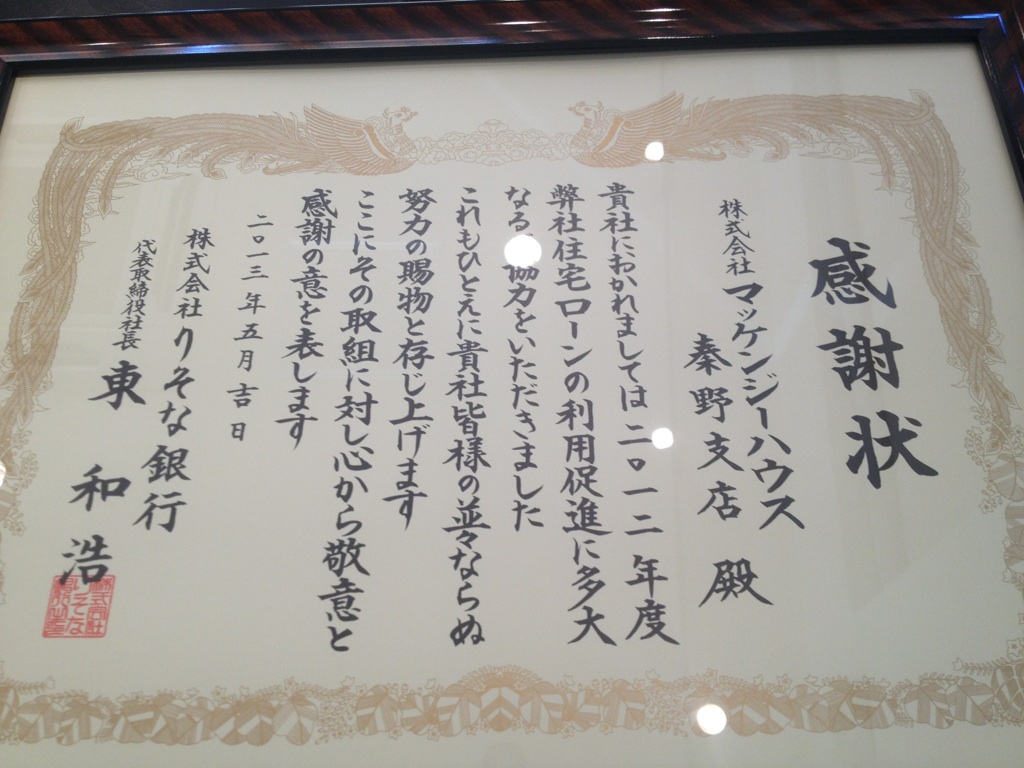 感謝状
株式会社 マッケンジーハウス
秦野支店 殿
貴社におかれましては二〇一二年度
弊社住宅ローンの利用促進に多大
なる 協力をいただきました
これもひとえに貴社皆様の並々ならぬ
努力の賜物と存じ上げます
ここにその取組に対し心から敬意と
感謝の意を表します
二〇一三年五月吉日
株式会社 りそな銀行
代表取締役社長 東 和浩